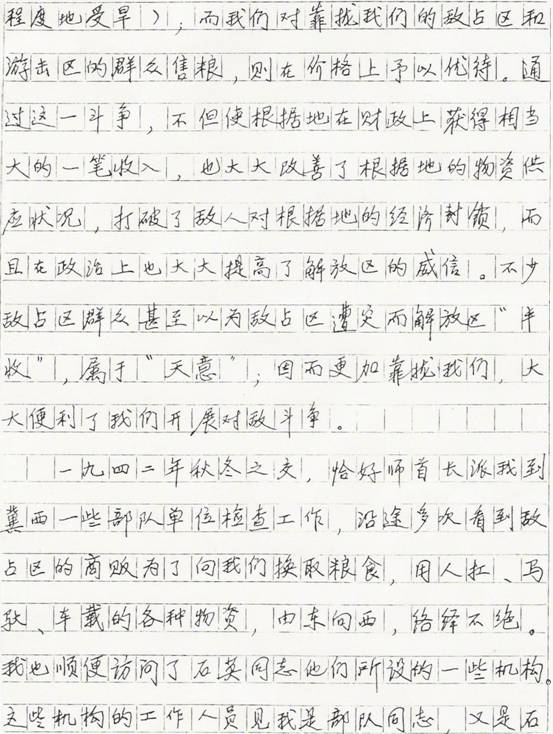 程度地受旱），而我们对靠拢我们的敌占区和
游击区的群众售粮，则在价格上予以优待。通
过这一斗争，不但使根据地在财政上获得相当
大的一笔收入，也大大改善了根据地的物资供
应状况，打破了敌人对根据地的经济封锁，而
且在政治上也大大提高了解放区的威信。不少
敌占区群众甚至以为敌占区遭灾而解放区“半
收”，属于“天意”；因而更加靠拢我们，大
大便利了我们开展对敌斗争。
一九四二年秋冬之交，恰好师首长派我到
冀西一些部队单位检查工作，沿途多次看到敌
占区的商贩为了向我们换取粮食，用人扛、马
驮、车载的各种物资，由东向西，络绎不绝。
我也顺便访问了石英同志他们所设的一些机构。
这些机构的工作人员见我是部队同志，又是石